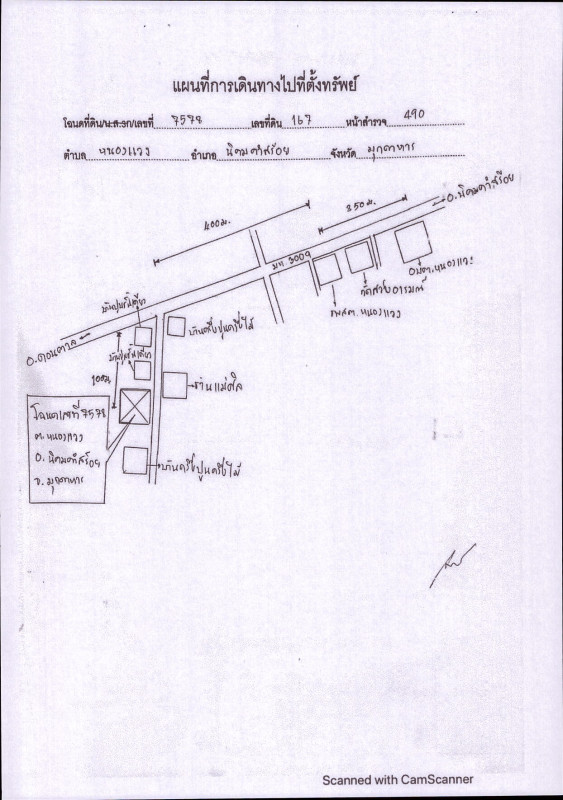 แผนที่การเดินทางไปที่ตั้งทรัพย์
โฉนดที่ดิน/น.ส.3ก/เลขที่ 7578 เลขที่ดิน 167 หน้าสำรวจ 490
ตำบล หนองแวง อำเภอ นิคมคำสร้อย จังหวัด มุกดาหาร
อ.นิคมคำสร้อย
350 ม.
400 ม.
มห. 3009
อบต. หนองแวง
วัดสว่างอารมณ์
รพสต. หนองแวง
บ้านปูนชั้นเดียว
บ้านครึ่งปูนครึ่งไม้
อ.ดอนตาล
บ้านปูนชั้นเดียว
100ม
โฉนดเลขที่ 7578
ต. หนองแวง
อ. นิคมคำสร้อย
จ. มุกดาหาร
บ้านครึ่งปูนครึ่งไม้
Scanned with CamScanner